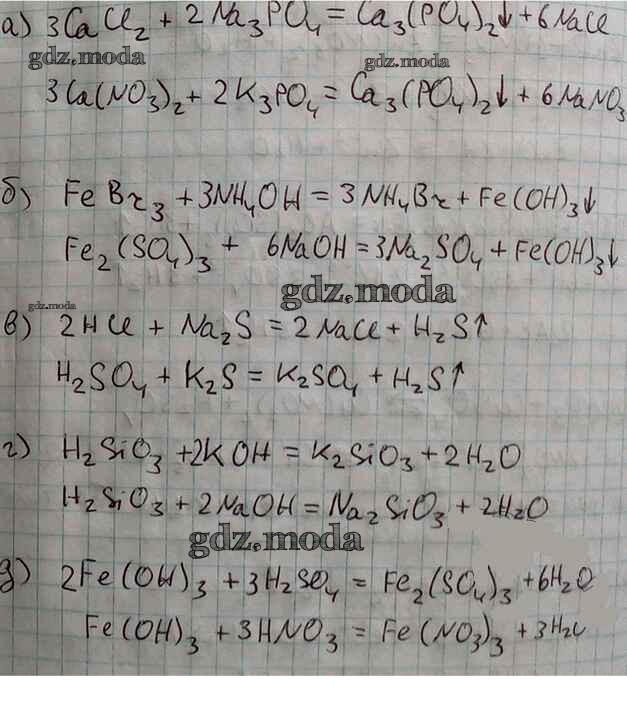 а) 3CaCl₂ + 2Na₃PO₄ = Ca₃(PO₄)₂↓ + 6NaCl
gdz.moda
gdz.moda
3Ca(NO₃)₂ + 2K₃PO₄ = Ca₃(PO₄)₂↓ + 6NaNO₃
б) FeBr₃ + 3NH₄OH = 3NH₄Br + Fe(OH)₃↓
Fe₂(SO₄)₃ + 6NaOH = 3Na₂SO₄ + Fe(OH)₃↓
gdz.moda
gdz.moda
в) 2HCl + Na₂S = 2NaCl + H₂S↑
H₂SO₄ + K₂S = K₂SO₄ + H₂S↑
г) H₂SiO₃ + 2KOH = K₂SiO₃ + 2H₂O
H₂SiO₃ + 2NaOH = Na₂SiO₃ + 2H₂O
gdz.moda
д) 2Fe(OH)₃ + 3H₂SO₄ = Fe₂(SO₄)₃ + 6H₂O
Fe(OH)₃ + 3HNO₃ = Fe(NO₃)₃ + 3H₂O